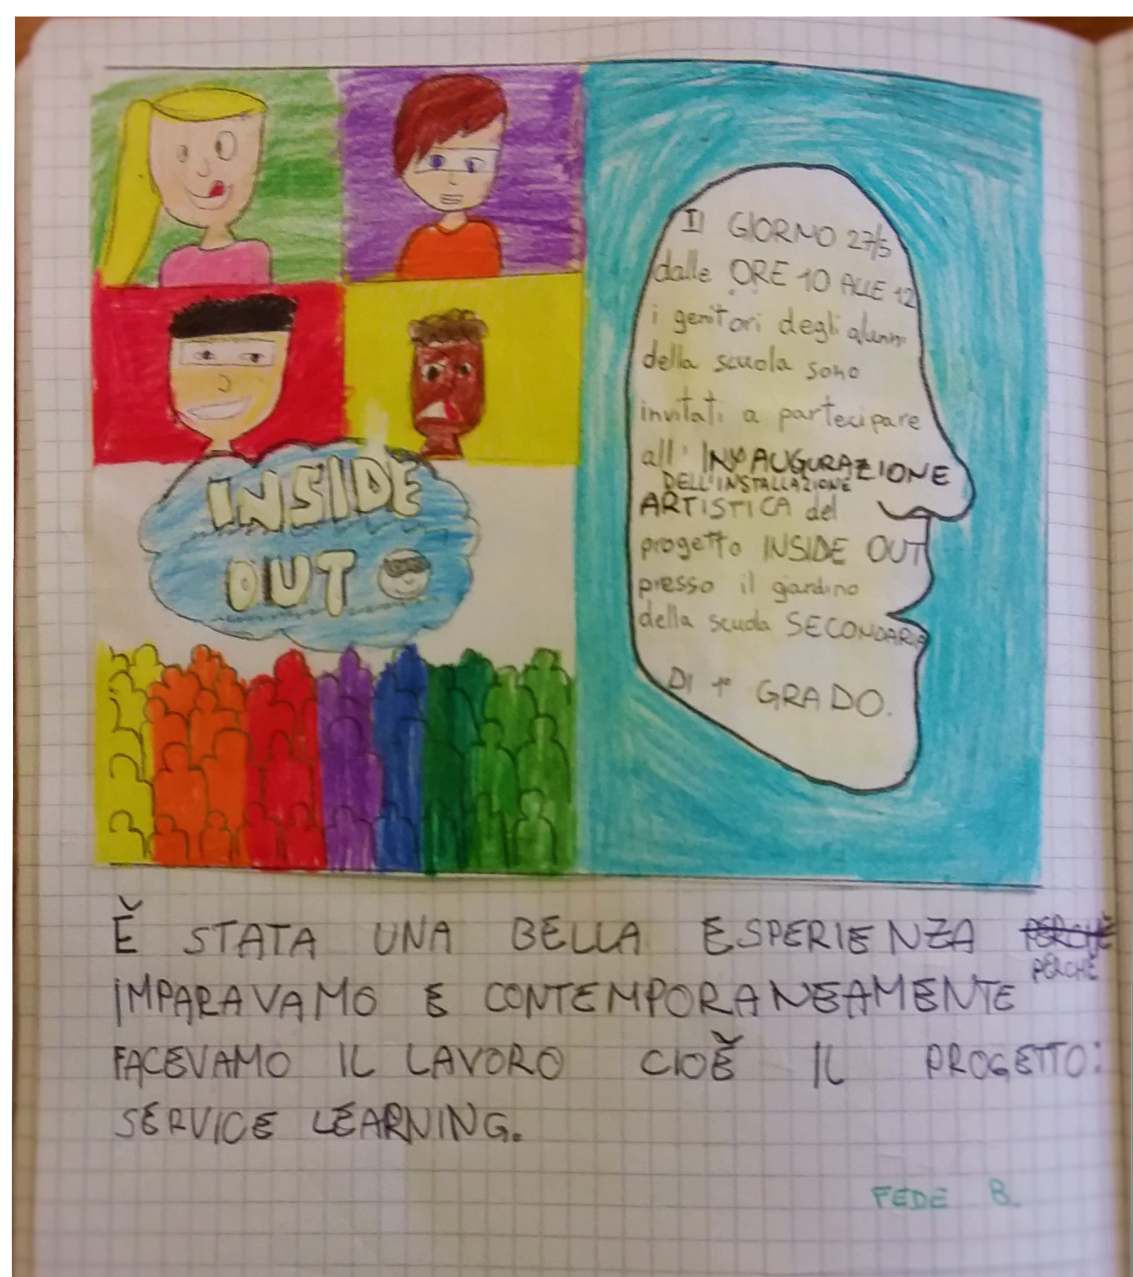 INSIDE
OUT
Il GIORNO 27/5
dalle ORE 10 ALLE 12
i genitori degli alunni
della scuola sono
invitati a partecipare
all'INAUGURAZIONE
DELL'INSTALLAZIONE
ARTISTICA del
progetto INSIDE OUT
presso il giardino
della scuola SECONDARIA
DI 1° GRADO.
È STATA UNA BELLA ESPERIENZA PERCHÈ
PERCHÈ
IMPARAVAMO E CONTEMPORANEAMENTE
FACEVAMO IL LAVORO CIOÈ IL PROGETTO:
SERVICE LEARNING.
FEDE B.